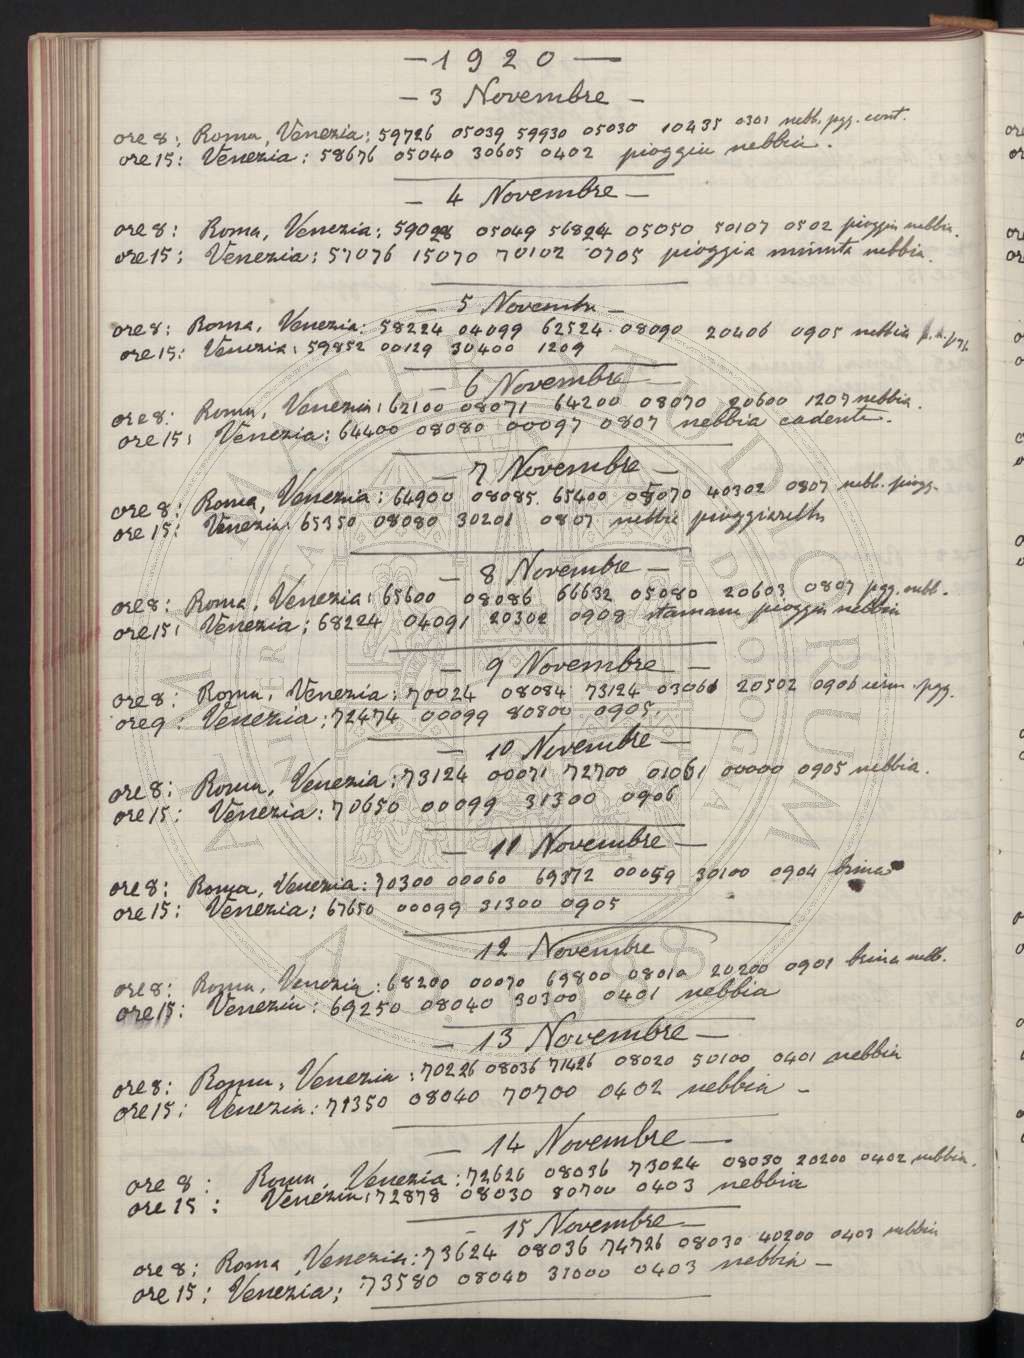 — 1 9 2 0 —
— 3 Novembre —
ore 8: Roma, Venezia: 59726 05039 59930 05030 10435 0301 nebb. pgg. cont.
ore 15: Venezia: 58676 05040 30605 0402 pioggia nebbia.
— 4 Novembre —
ore 8: Roma, Venezia: 05049 56824 05050 50107 0502 pioggia nebbia.
ore 15: Venezia: 57076 15070 70102 0705 pioggia minuta nebbia.
— 5 Novembre —
ore 8: Roma, Venezia: 58224 04099 62524 08090 20406 0905 nebbia
ore 15: Venezia: 59852 00129 30400 1209
— 6 Novembre —
ore 8: Roma, Venezia: 62100 08071 64200 08070 20600 1207 nebbia.
ore 15: Venezia: 64400 08080 00097 0807 nebbia cadente.
— 7 Novembre —
ore 8: Roma, Venezia: 64900 08085 65400 08070 40302 0807 nebb. piogg.
ore 15: Venezia: 65350 08080 30201 0807 nebbia pioggiarella
— 8 Novembre —
ore 8: Roma, Venezia: 65600 08086 66632 05080 20603 0807 pgg. nebb.
ore 15: Venezia: 68224 04091 20302 0908 stamani pioggia nebbia
— 9 Novembre —
ore 8: Roma, Venezia: 70024 08084 73124 03061 20502 0906 pgg.
ore 9: Venezia: 72474 00099 80800 0905.
— 10 Novembre —
ore 8: Roma, Venezia: 73124 00071 72700 01061 00000 0905 nebbia.
ore 15: Venezia: 70650 00099 31300 0906
— 11 Novembre —
ore 8: Roma, Venezia: 70300 00060 69372 00059 30100 0904 brina
ore 15: Venezia: 67650 00099 31300 0905
12 Novembre
ore 8: Roma, Venezia: 68200 00070 69800 08010 20200 0901 brina nebb.
ore 15: Venezia: 69250 08040 30300 0401 nebbia
— 13 Novembre —
ore 8: Roma, Venezia: 70226 08036 71426 08020 50100 0401 nebbia
ore 15: Venezia: 71350 08040 70700 0402 nebbia —
— 14 Novembre —
ore 8: Roma, Venezia: 72626 08036 73024 08030 20200 0402 nebbia.
ore 15: Venezia: 72878 08030 80700 0403 nebbia
— 15 Novembre —
ore 8: Roma, Venezia: 73624 08036 74726 08030 40200 0403 nebbia
ore 15: Venezia: 73580 08040 31000 0403 nebbia —